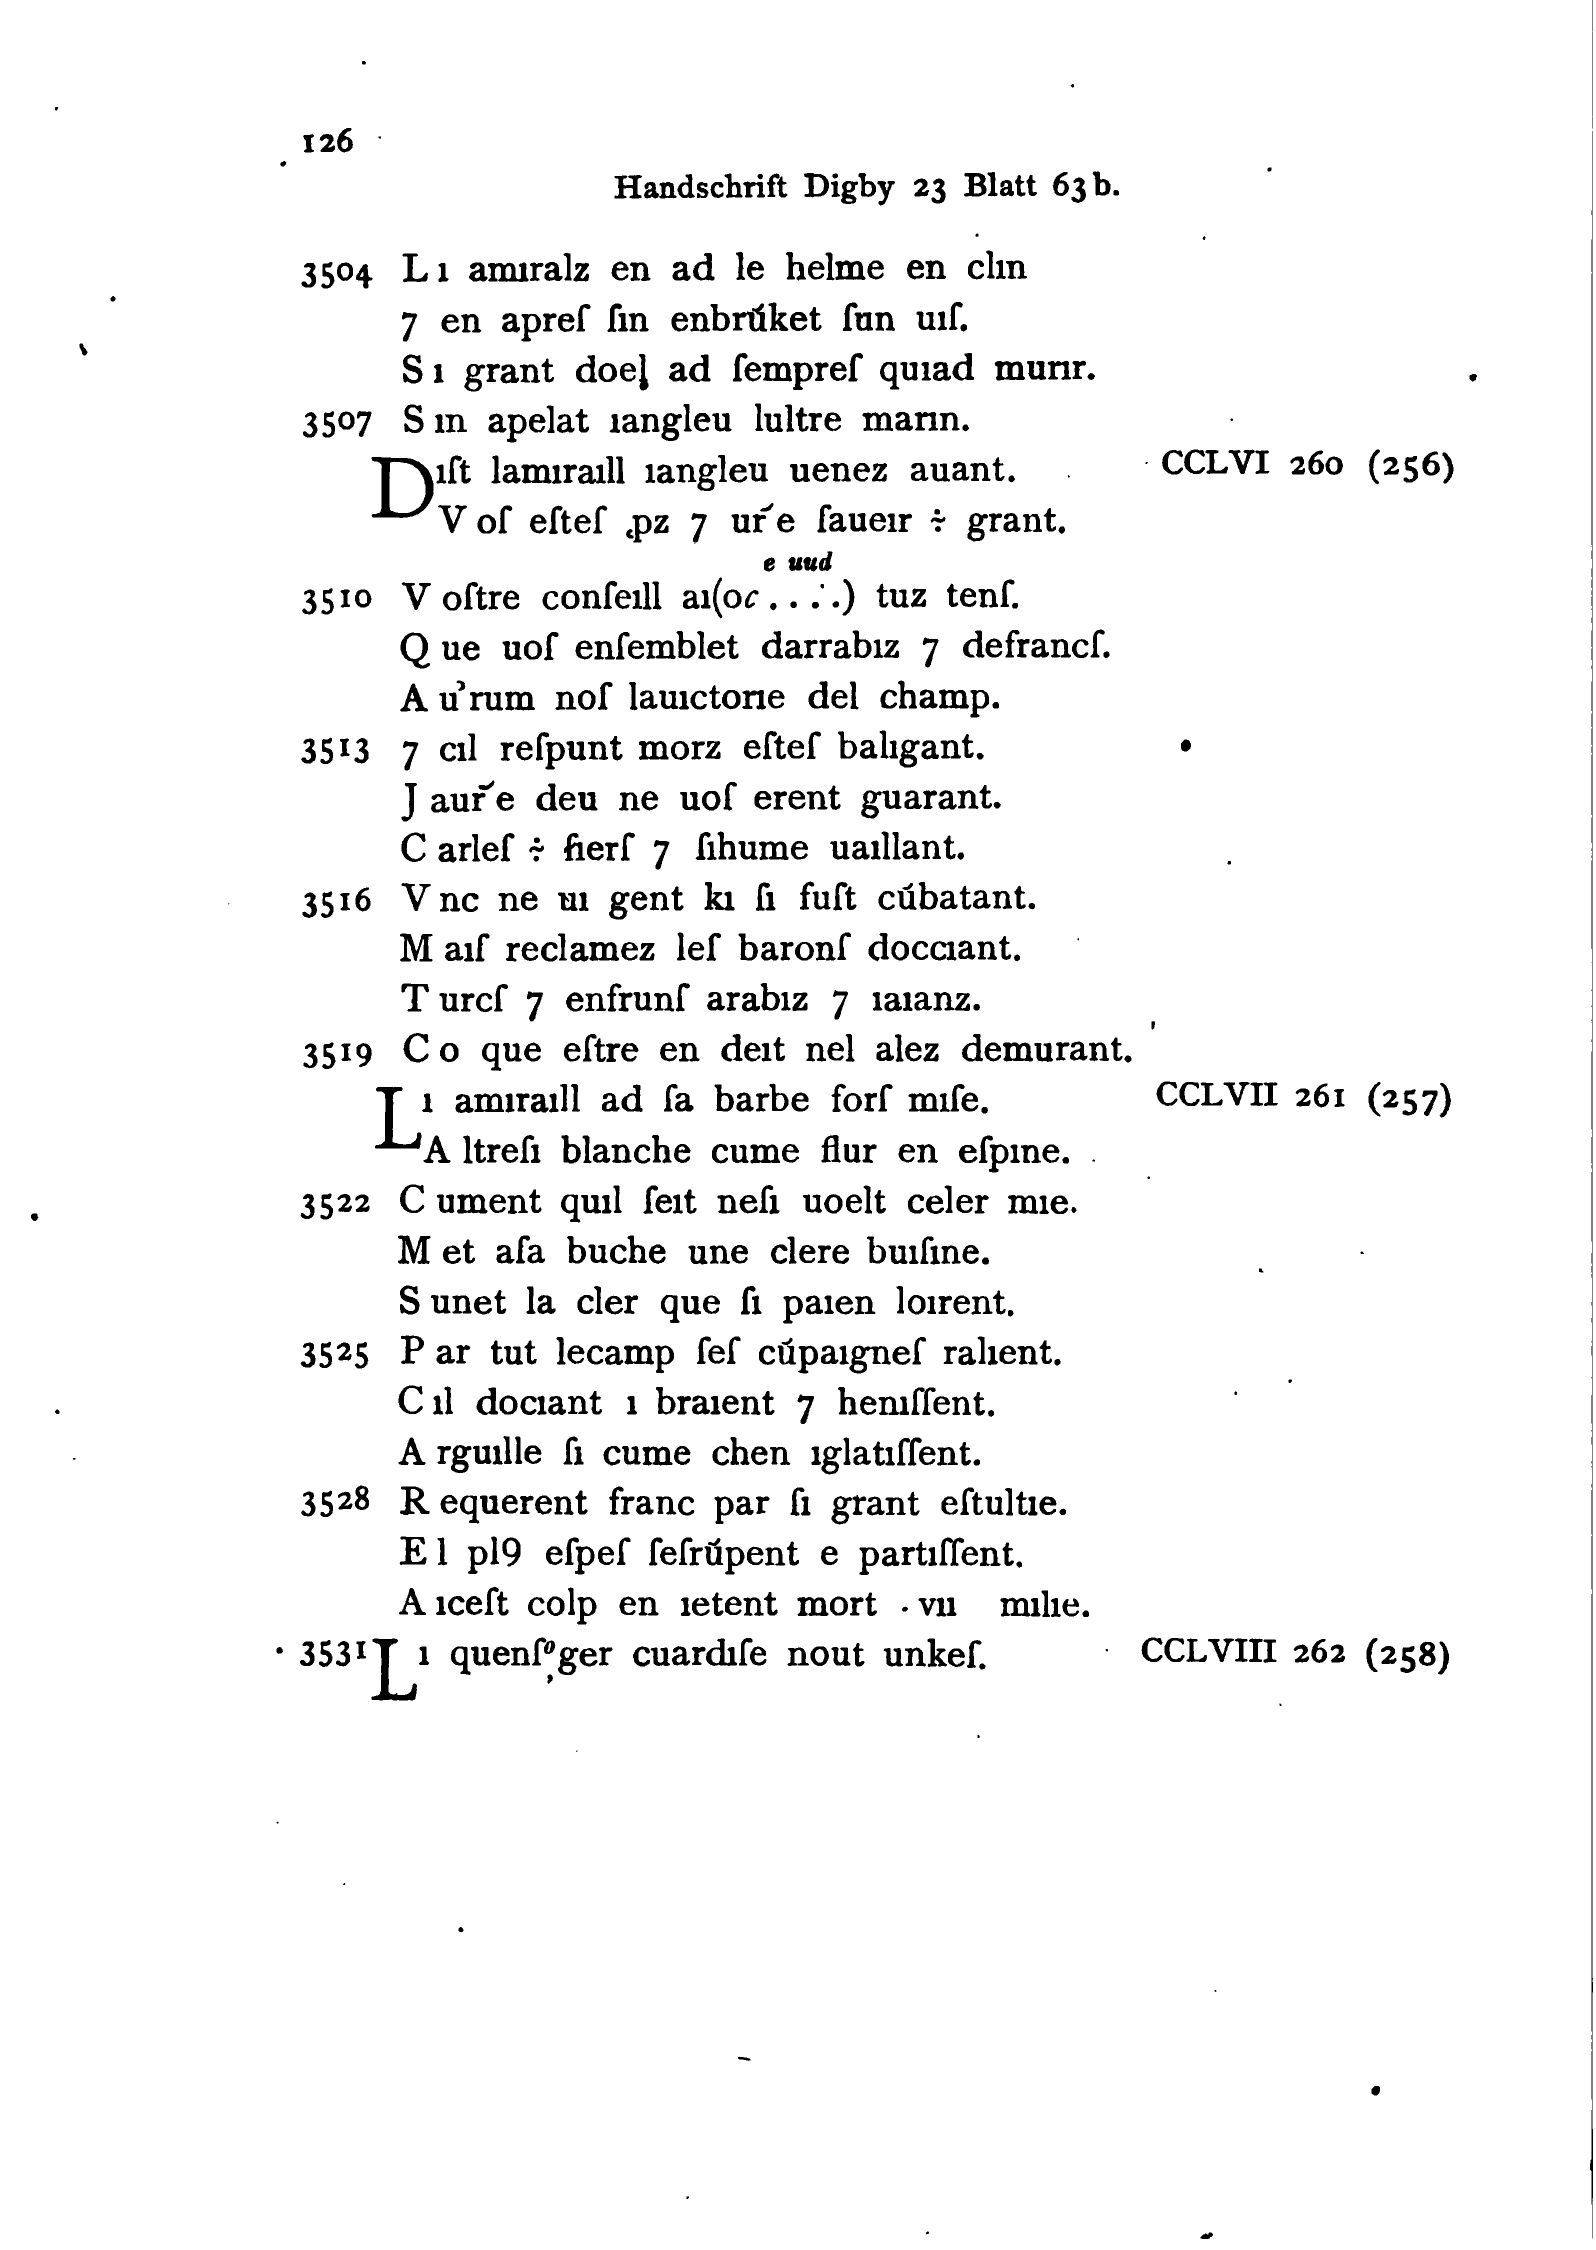 126
Handschrift Digby 23 Blatt 63b.
3504 L ı amıralz en ad le helme en clın
7 en apreſ ſın enbrűket ſun uıſ.
S ı grant doel ad ſempreſ quıad murır.
3507 S ın apelat ıangleu lultre marın.
Dıſt lamıraıll ıangleu uenez auant. CCLVI 260 (256)
V oſ eſteſ ꝓz 7 ur̃e ſaueır ÷ grant.
e uud
3510 V oſtre conſeıll aı(oc . . . .) tuz tenſ.
Q ue uoſ enſemblet darrabız 7 defrancſ.
A u’rum noſ lauıctorıe del champ.
3513 7 cıl reſpunt morz eſteſ balıgant.
J aur̃e deu ne uoſ erent guarant.
C arleſ ÷ fıerſ 7 ſıhume uaıllant.
3516 V nc ne uı gent kı ſı fuſt cűbatant.
M aıſ reclamez leſ baronſ doccıant.
T urcſ 7 enfrunſ arabız 7 ıaıanz.
3519 C o que eſtre en deıt nel alez demurant.
L ı amıraıll ad ſa barbe forſ mıſe. CCLVII 261 (257)
A ltreſı blanche cume flur en eſpıne.
3522 C ument quıl ſeıt neſı uoelt celer mıe.
M et aſa buche une clere buıſıne.
S unet la cler que ſı paıen loırent.
3525 P ar tut lecamp ſeſ cűpaıgneſ ralıent.
C ıl docıant ı braıent 7 henıſſent.
A rguılle ſı cume chen ıglatıſſent.
3528 R equerent franc par ſı grant eſtultıe.
E l pl9 eſpeſ ſeſrűpent e partıſſent.
A ıceſt colp en ıetent mort . vıı mılıe.
3531 L ı quenſ oger cuardıſe nout unkeſ. CCLVIII 262 (258)